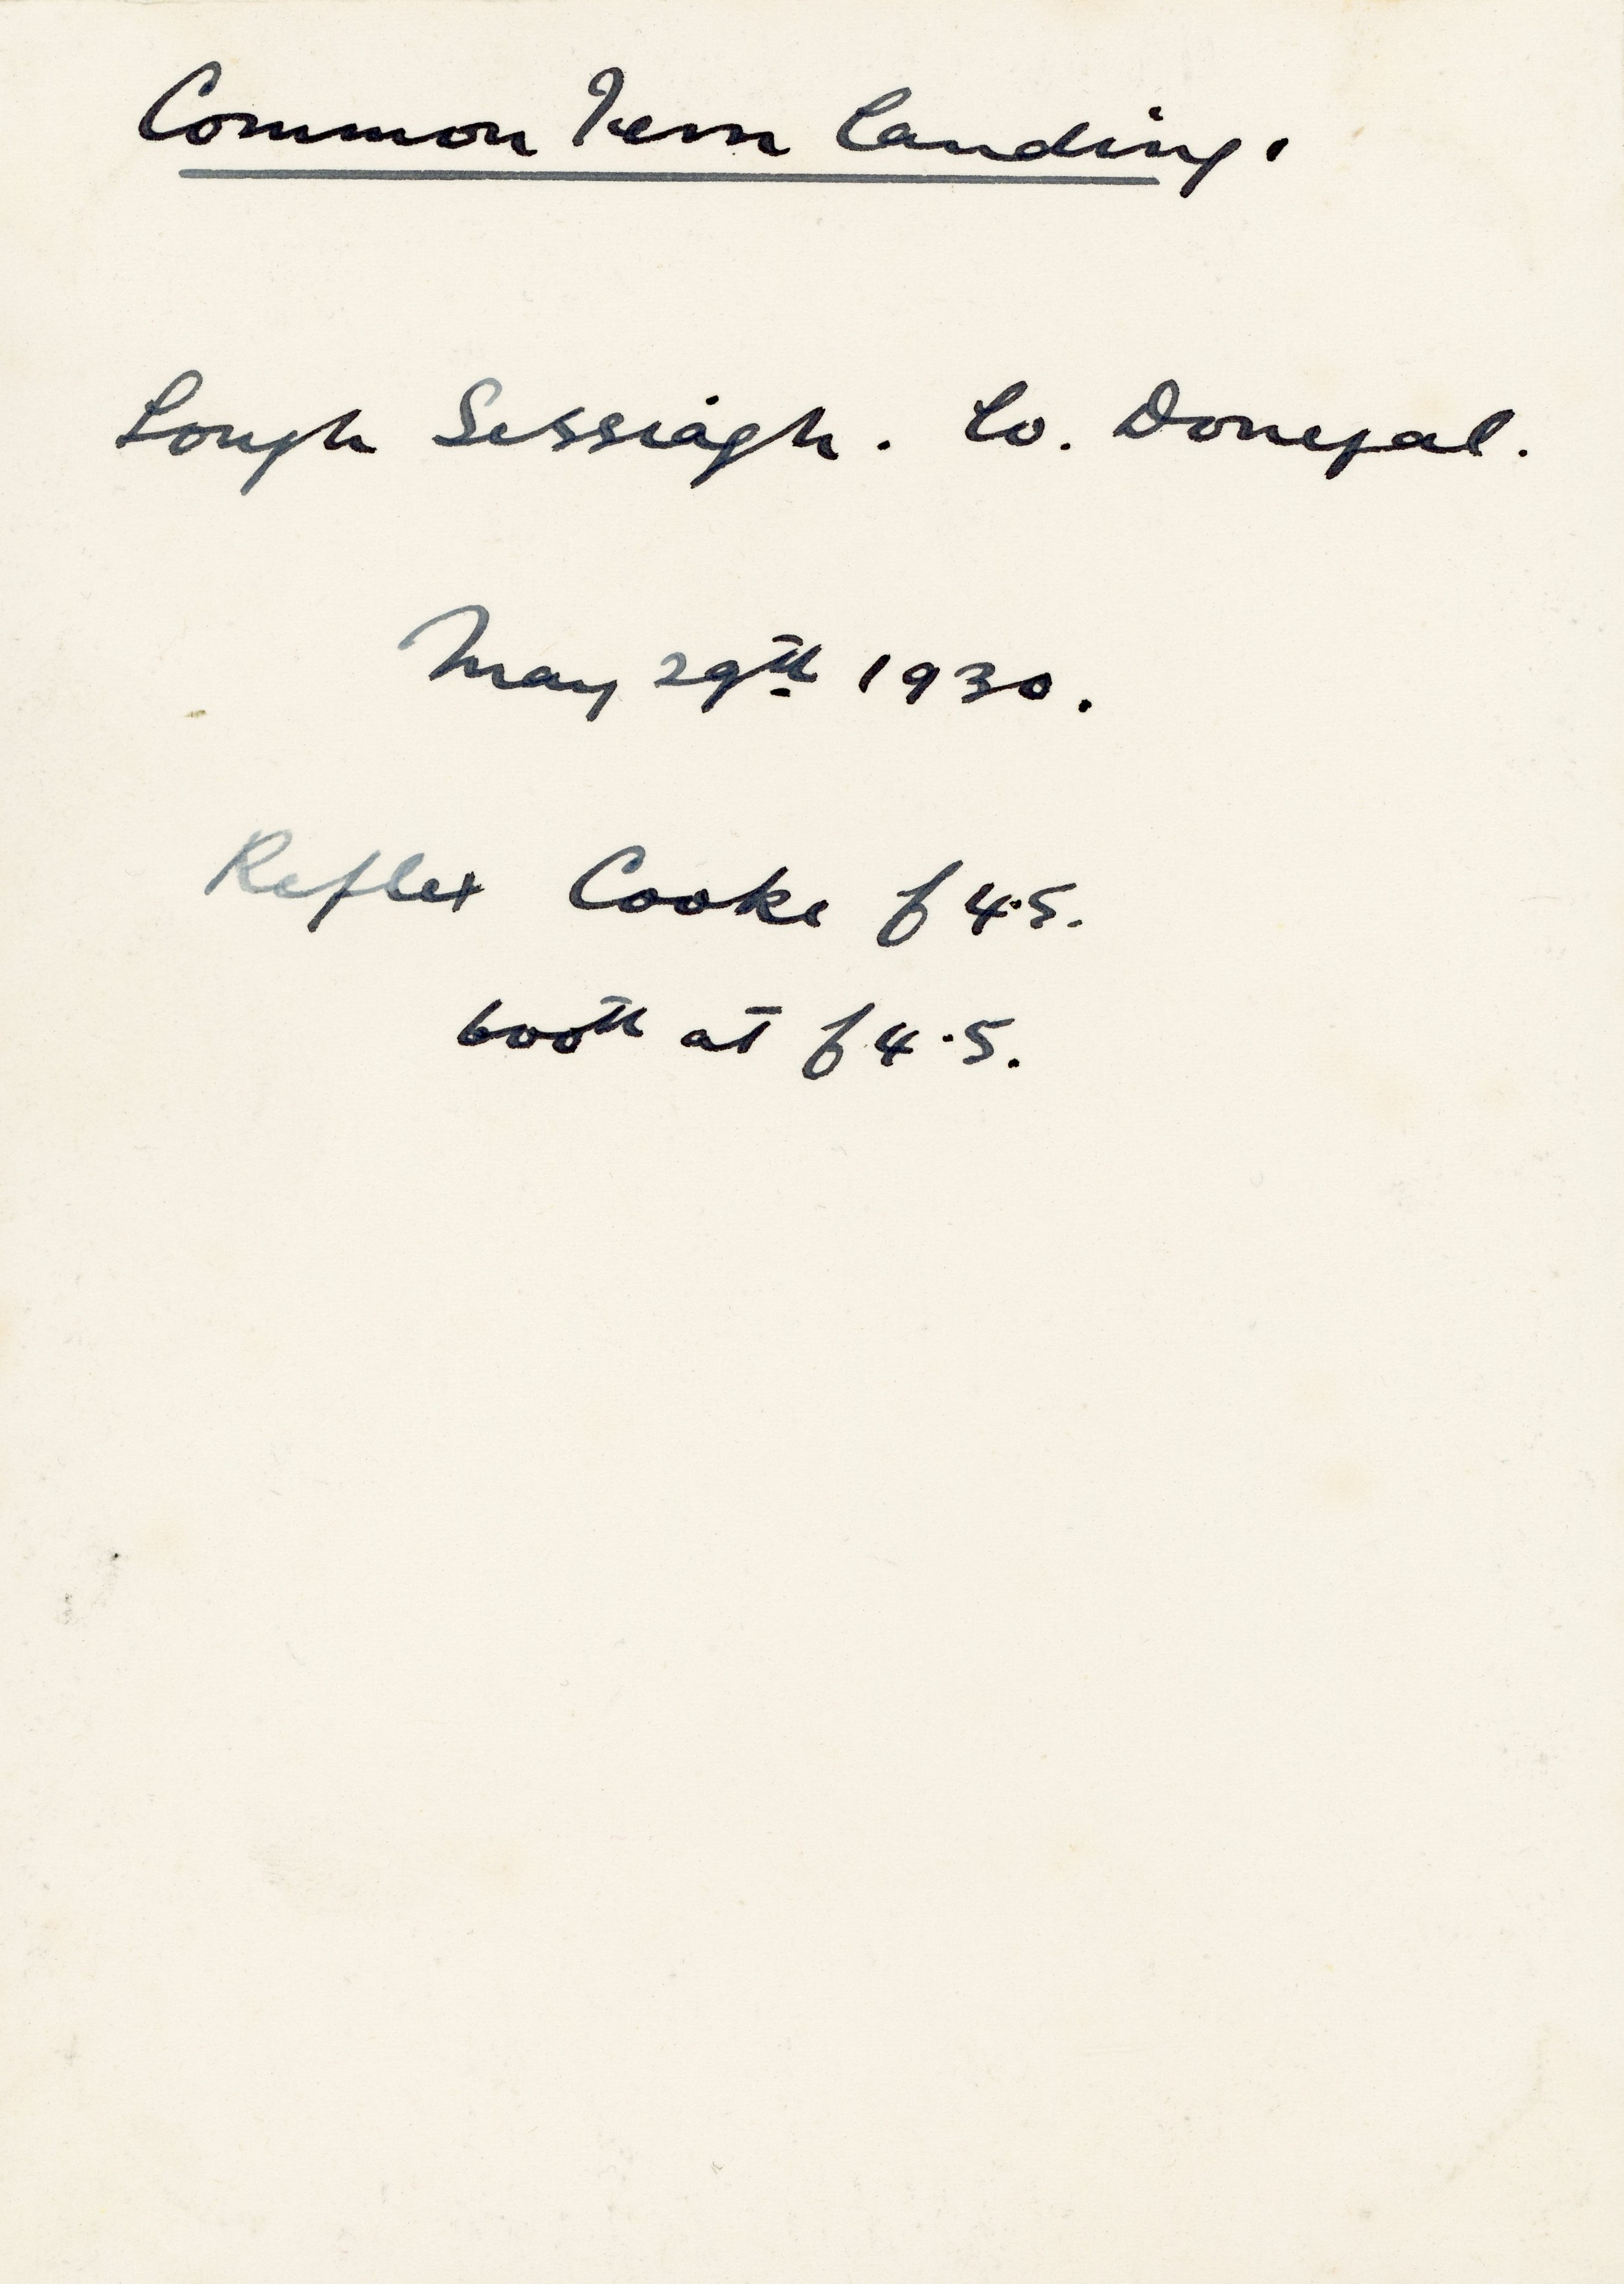 Common Tern landing.
Lough Sessiagh. Co. Donegal.
May 29th 1930.
Reflex Cooke f 4.5.
600th at f 4.5.